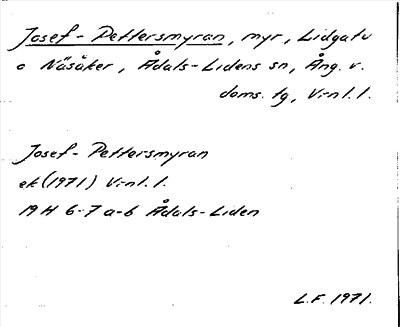 Josef-Pettersmyran, myr, Lidgatu
o Näsåker, Ådals-Lidens sn, Ång. v.
doms. tg, V:nl. l.
Josef-Pettersmyran
ek (1971) V:nl. l.
19 H 6-7 a-b Ådals-Liden
L.F. 1971.